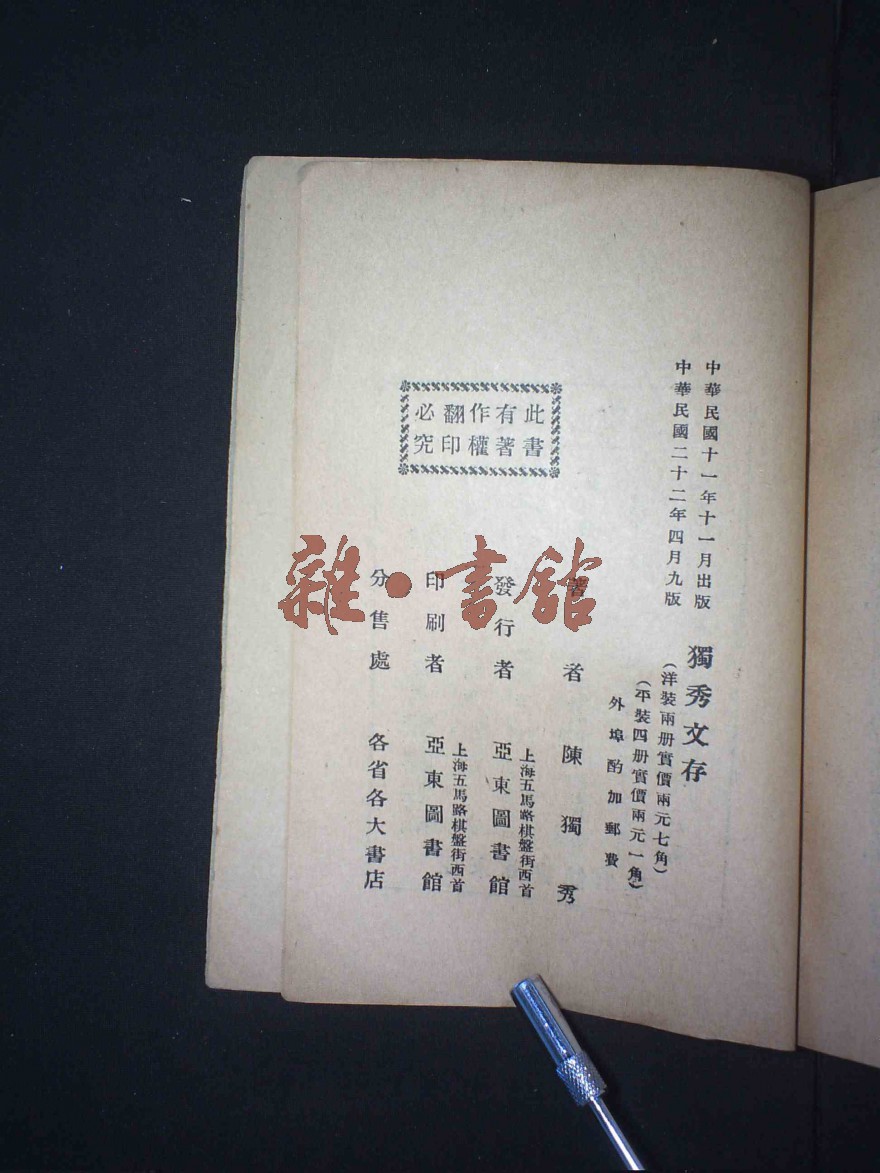 中華民國十一年十一月出版
中華民國二十二年四月九版
獨秀文存
(洋裝兩册實價兩元七角)
(平裝四册實價兩元一角)
外埠酌加郵費
著者 陳獨秀
上海五馬路棋盤街西首
發行者 亞東圖書館
上海五馬路棋盤街西首
印刷者 亞東圖書館
分售處 各省各大書店
此書
有著
作權
翻印
必究
雜·書館